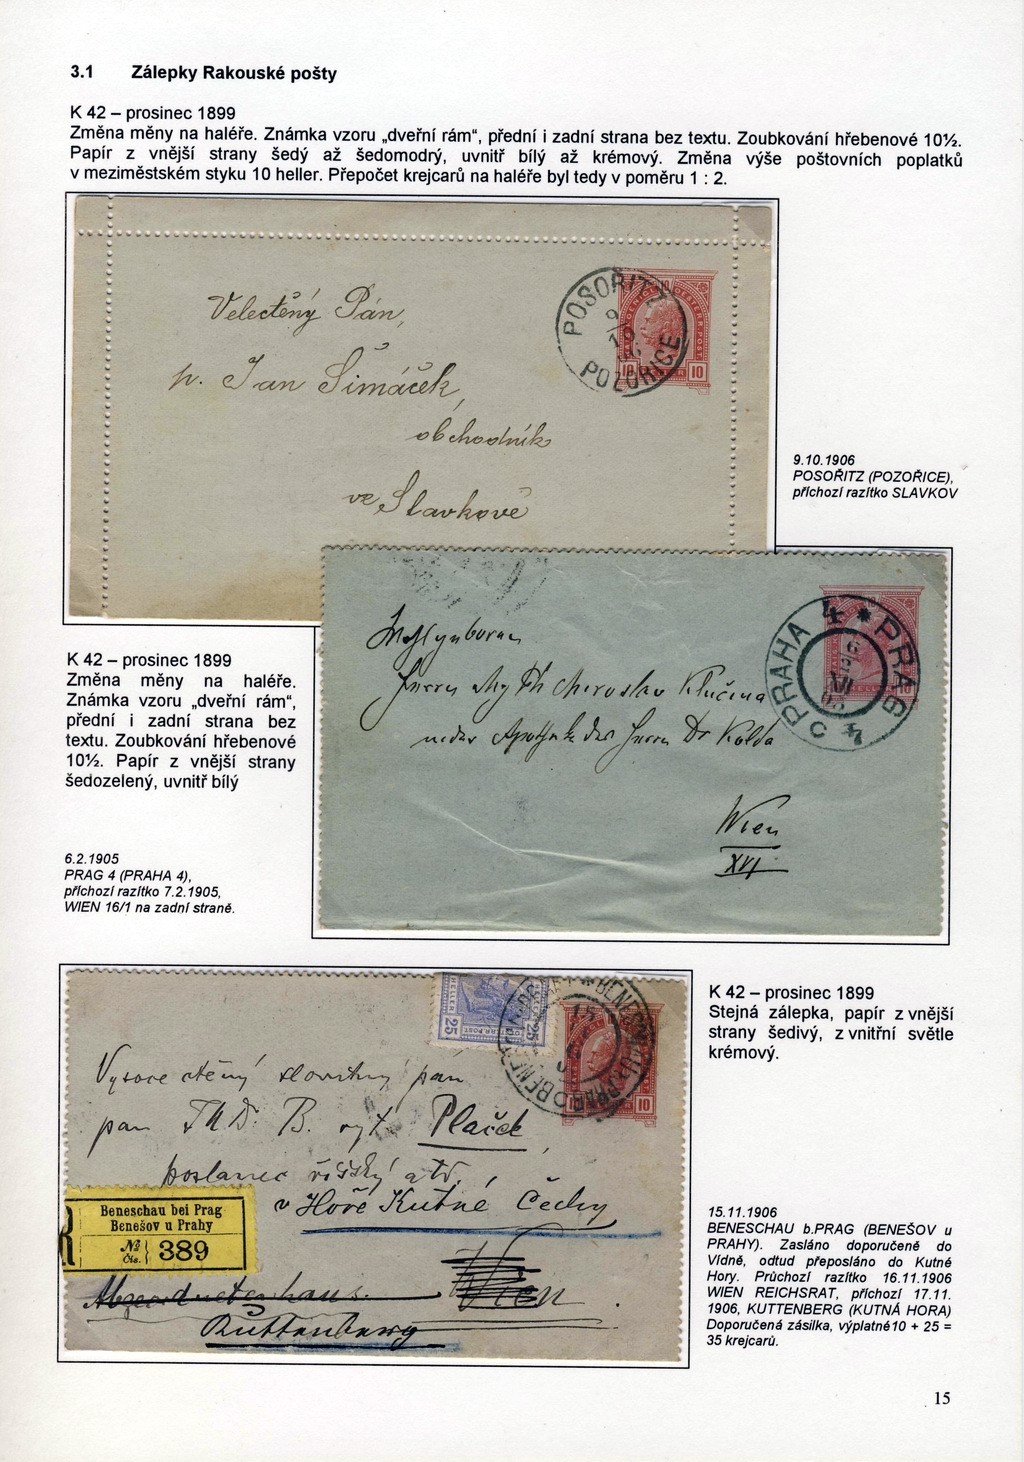 3.1 Zálepky Rakouské pošty
K 42 – prosinec 1899
Změna měny na haléře. Známka vzoru „dveřní rám“, přední i zadní strana bez textu. Zoubkování hřebenové 10½.
Papír z vnější strany šedý až šedomodrý, uvnitř bílý až krémový. Změna výše poštovních poplatků
v meziměstském styku 10 heller. Přepočet krejcarů na haléře byl tedy v poměru 1 : 2.
POSOŘITZ
9
10
POZOŘICE
10 10
Velectěný Pán,
p. Jan Šimáček,
obchodník
ve Slavkově
9.10.1906
POSOŘITZ (POZOŘICE),
příchozí razítko SLAVKOV
K 42 – prosinec 1899
Změna měny na haléře.
Známka vzoru „dveřní rám“,
přední i zadní strana bez
textu. Zoubkování hřebenové
10½. Papír z vnější strany
šedozelený, uvnitř bílý
PRAG 4
PRAHA 4
10
Herrn Mg Ph Miroslav Klučina
Herrn Dr Kolda
Wien
XVI
6.2.1905
PRAG 4 (PRAHA 4),
příchozí razítko 7.2.1905,
WIEN 16/1 na zadní straně.
25 HELLER 25
10
Vysoce ctěný slovutný pán
pan ThDr. B. ryt. Plaček,
poslanec říšský atd.
v Hoře Kutné Čechy
Beneschau bei Prag
Benešov u Prahy
R
№
čis. 389
Abgeordnetenhaus.
Wien
Kuttenberg
K 42 – prosinec 1899
Stejná zálepka, papír z vnější
strany šedivý, z vnitřní světle
krémový.
15.11.1906
BENESCHAU b.PRAG (BENEŠOV u
PRAHY). Zasláno doporučeně do
Vídně, odtud přeposláno do Kutné
Hory. Průchozí razítko 16.11.1906
WIEN REICHSRAT, příchozí 17.11.
1906, KUTTENBERG (KUTNÁ HORA)
Doporučená zásilka, výplatné10 + 25 =
35 krejcarů.
15